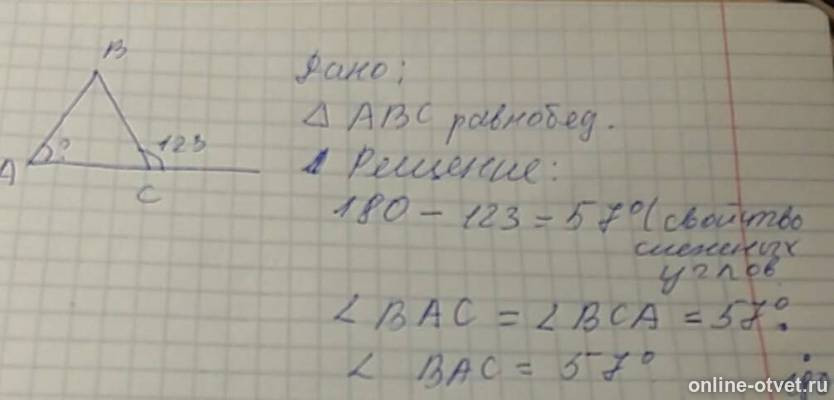 B
A
?
123
C
Дано:
Δ ABC равнобед.
Решение:
180 - 123 = 57° (свойство
смежных
углов
∠ BAC = ∠ BCA = 57°.
∠ BAC = 57°
online-otvet.ru